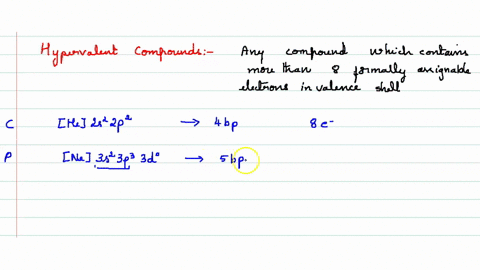 Hypervalent Compounds:- Any compound which contains
more than 8 formally assignable
electrons in valence shell
C [He] 2s² 2p² → 4 bp 8 e⁻
P [Ne] 3s² 3p³ 3d⁰ → 5 bp.